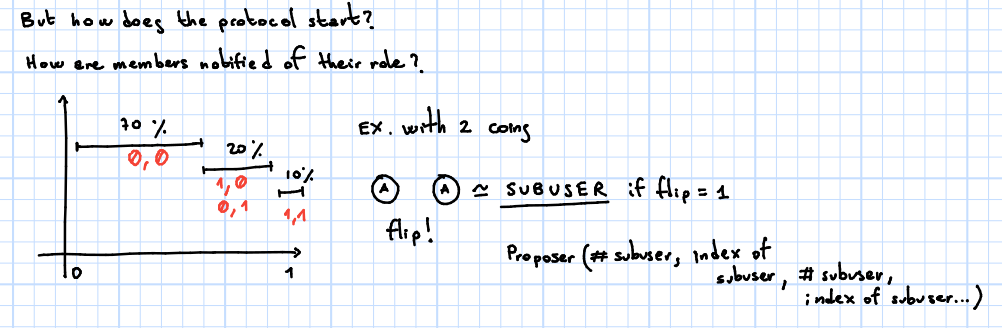 But how does the protocol start?
How are members notified of their role?
70 %
0, 0
20 %
1, 0
0, 1
10%
1, 1
0
1
EX. with 2 coins
A A ≃ SUBUSER if flip = 1
flip!
Proposer (# subuser, index of
subuser, # subuser,
index of subuser...)